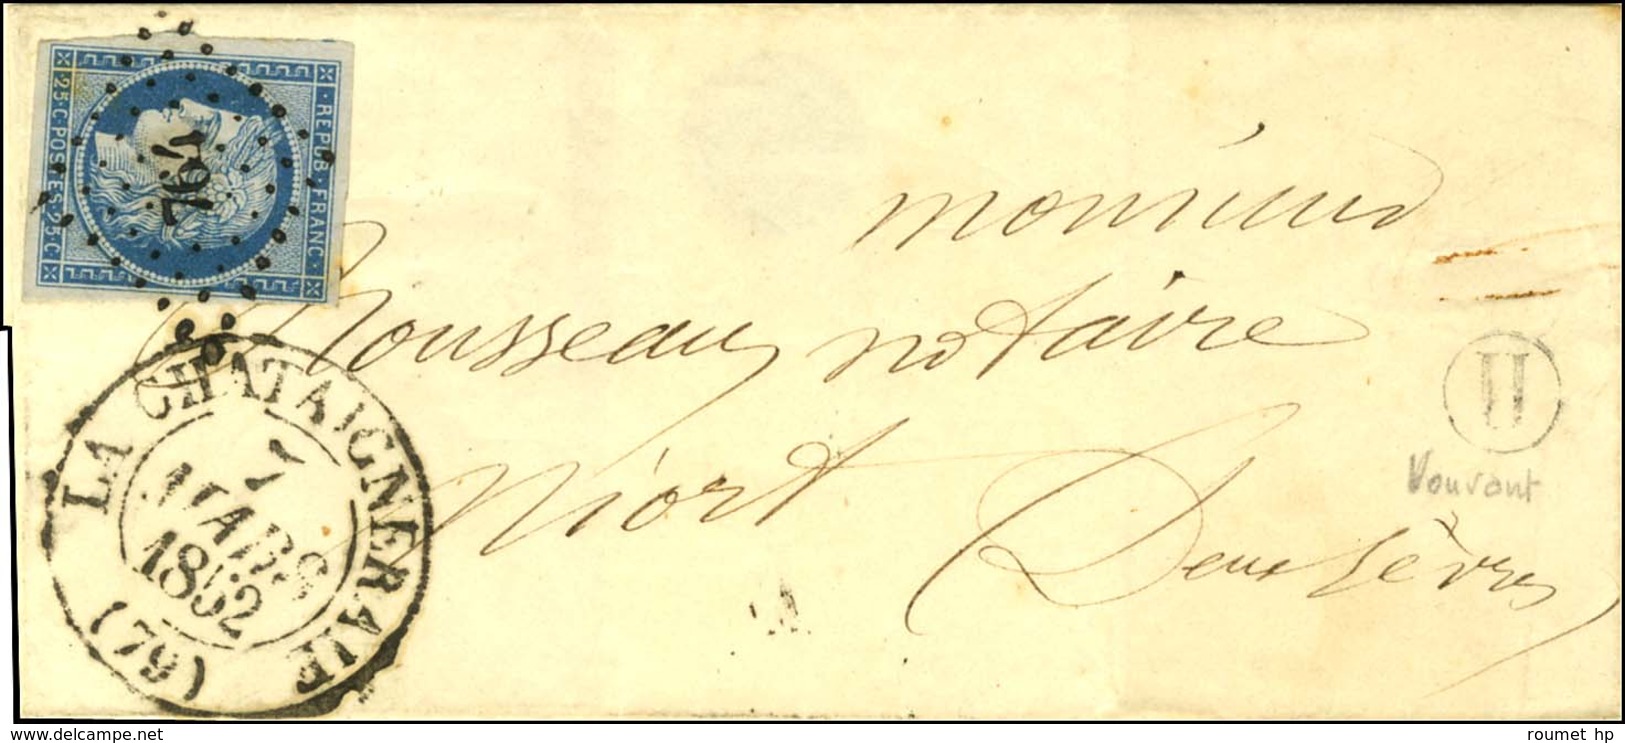 REPUB. FRANC.
25.c. POSTES. 25.c.
764
LA CHATAIGNERAIE
7
MARS
1852
(79)
monsieur
Rousseau notaire
Niort
Deux Sèvres
H
Vouvant
www.delcampe.net
roumet hp